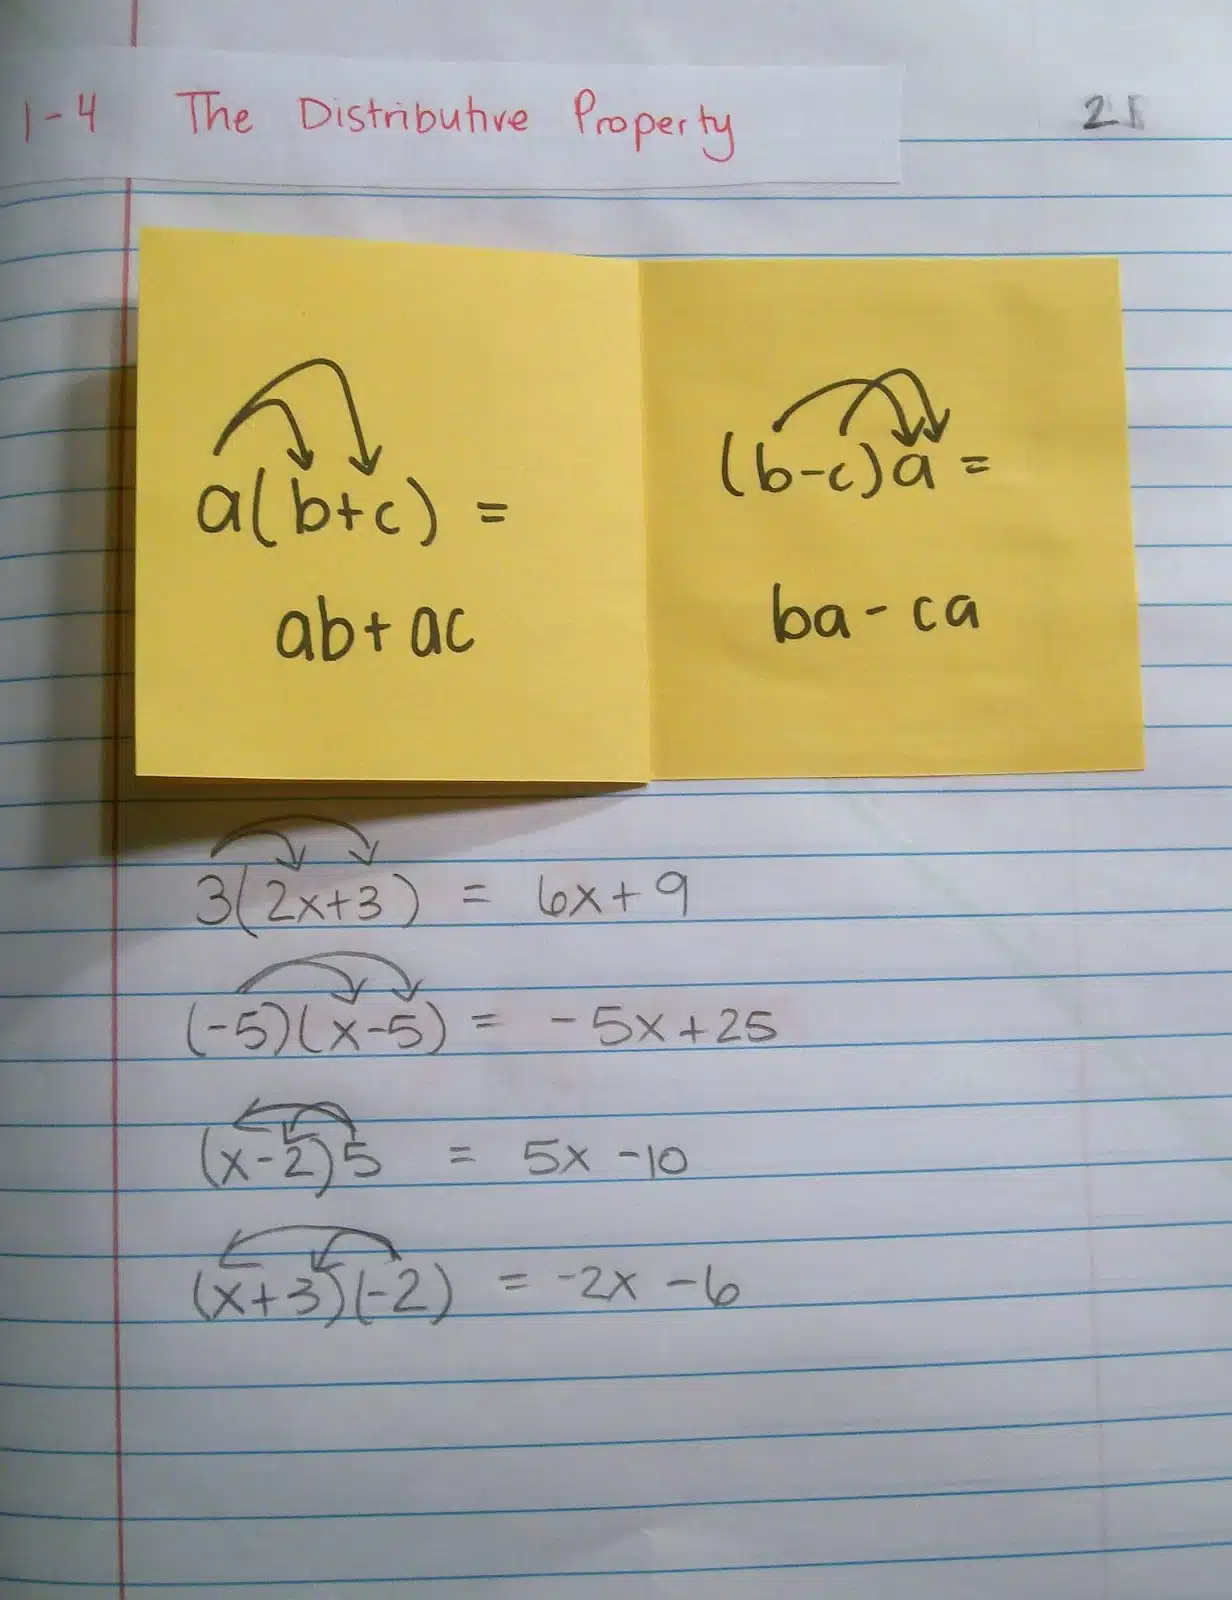 1-4 The Distributive Property 21
a(b+c) =
ab+ac
(b-c)a =
ba-ca
3(2x+3) = 6x+9
(-5)(x-5) = -5x+25
(x-2)5 = 5x-10
(x+3)(-2) = -2x-6